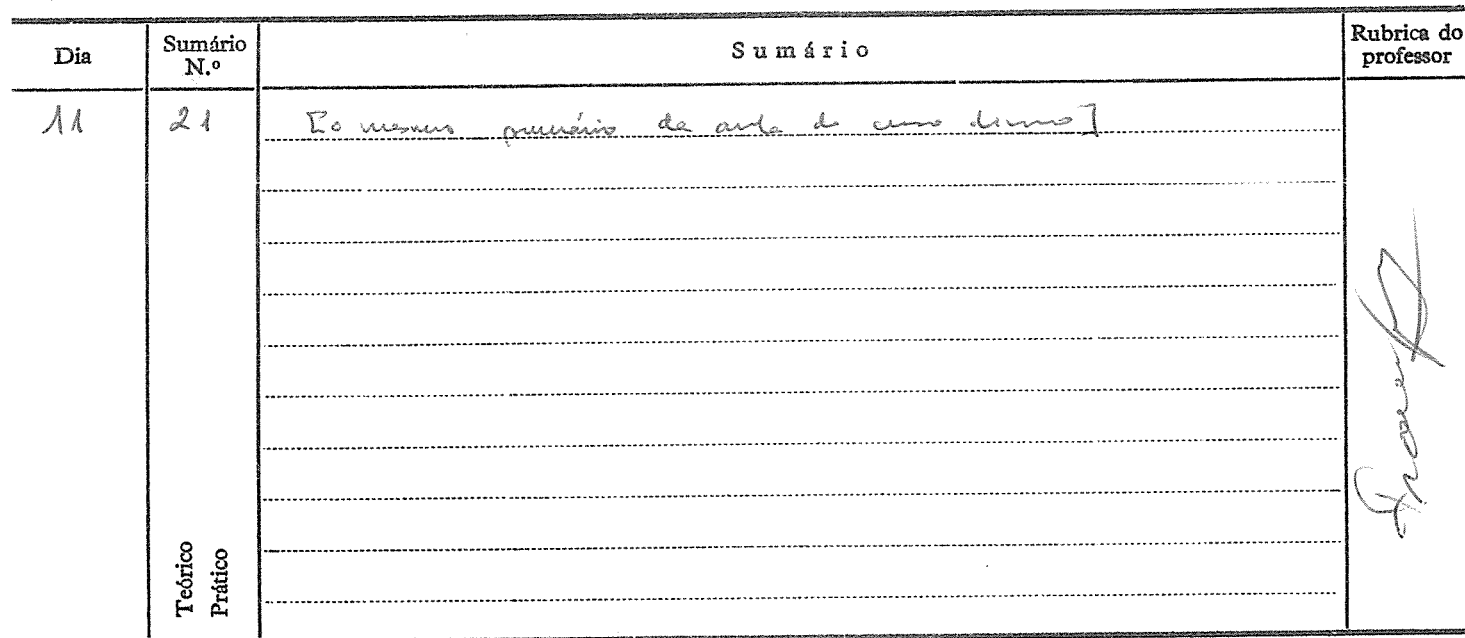 Dia
Sumário N.º
Sumário
Rubrica do professor
11
21
[o mesmo sumário da aula do curso diurno]
Teórico
Prático